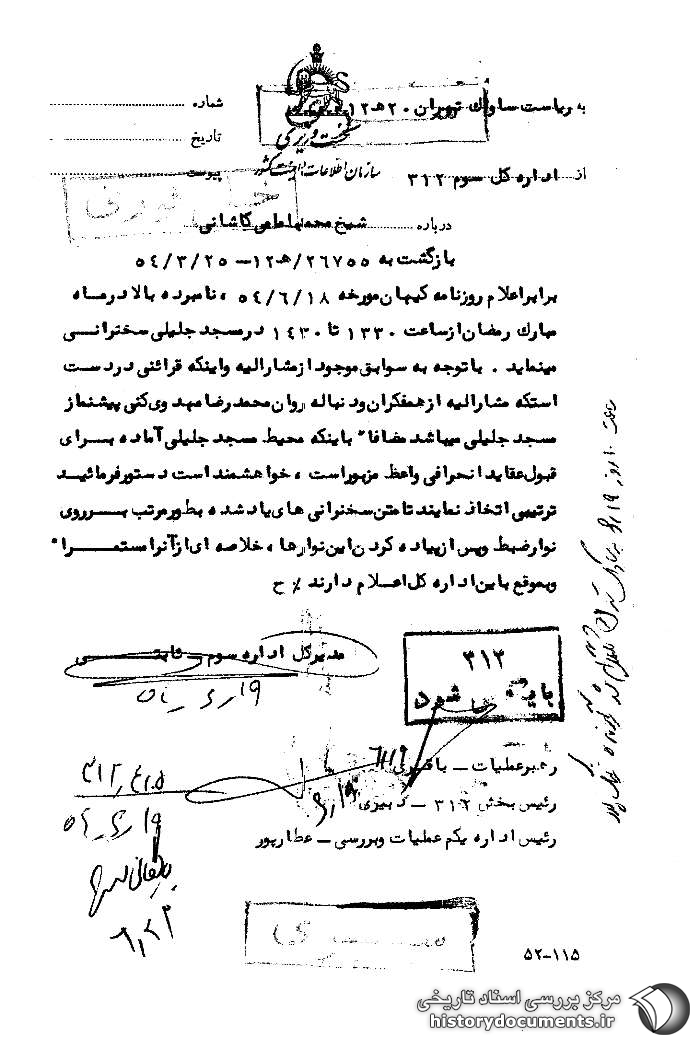 شماره
به ریاست ساواک تهران ۲۰ ه‍ ۱۲
نخست وزیری
تاریخ
سازمان اطلاعات و امنیت کشور
پیوست
از اداره کل سوم ۳۱۲
خیلی فوری
درباره شیخ محمد امامی کاشانی
بازگشت به ۲۶۷۵۵/ه‍ ۱۲ – ۵۴/۳/۲۵
برابر اعلام روزنامه کیهان مورخه ۵۴/۶/۱۸ ، نامبرده بالا در ماه
مبارک رمضان از ساعت ۱۳۳۰ تا ۱۴۳۰ در مسجد جلیلی سخنرانی
مینماید . با توجه به سوابق موجود از مشارالیه و اینکه قرائنی در دست
استکه مشارالیه از همفکران و دنباله روان محمد رضا مهدوی کنی پیشنماز
مسجد جلیلی میباشد مضافا" باینکه محیط مسجد جلیلی آماده برای
قبول عقاید انحرافی واعظ مزبور است ، خواهشمند است دستور فرمائید
ترتیبی اتخاذ نمایند تا متن سخنرانی های یاد شده بطور مرتب بر روی
نوار ضبط و پس از پیاده کردن این نوارها ، خلاصه ای از آنرا مستمرا"
و بموقع باین اداره کل اعلام دارند ٪ ح
مدیر کل اداره سوم – ثابتی
۱۹
۳۱۲
بایگانی شود
رهبر عملیات – باقری
۶/۱۹
رئیس بخش ۳۱۲ –
رئیس اداره یکم عملیات و بررسی – عطارپور
۳۱۲
۱۹
بایگانی
سری
۵۲-۱۱۵
مرکز بررسی اسناد تاریخی
historydocuments.ir